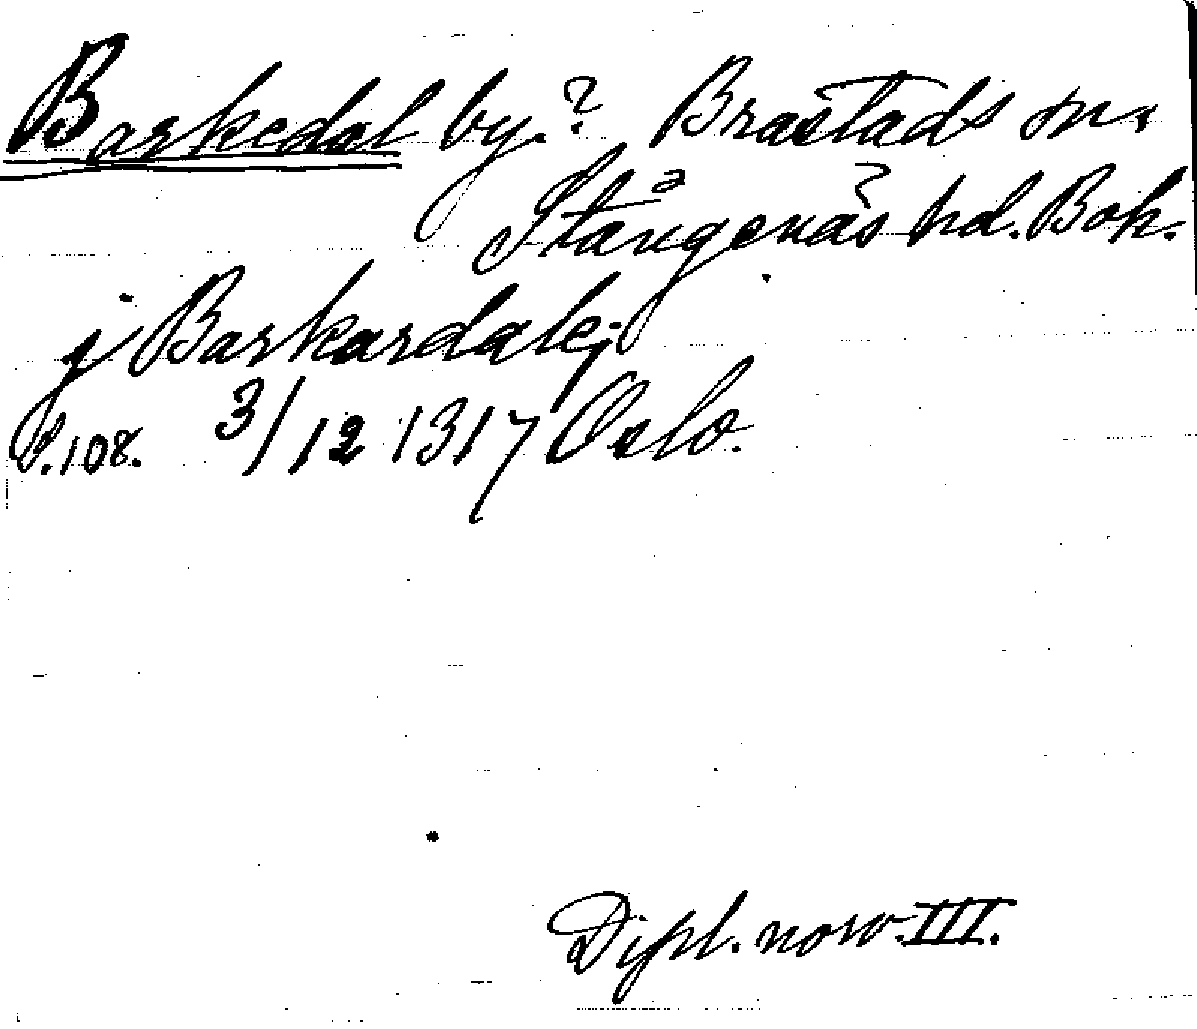 Barkedal by.? Brastads sn.
Stångenäs hd. Boh.
j Barkardale;
S.108. 3/12 1317 Oslo.
Dipl. norv. III.